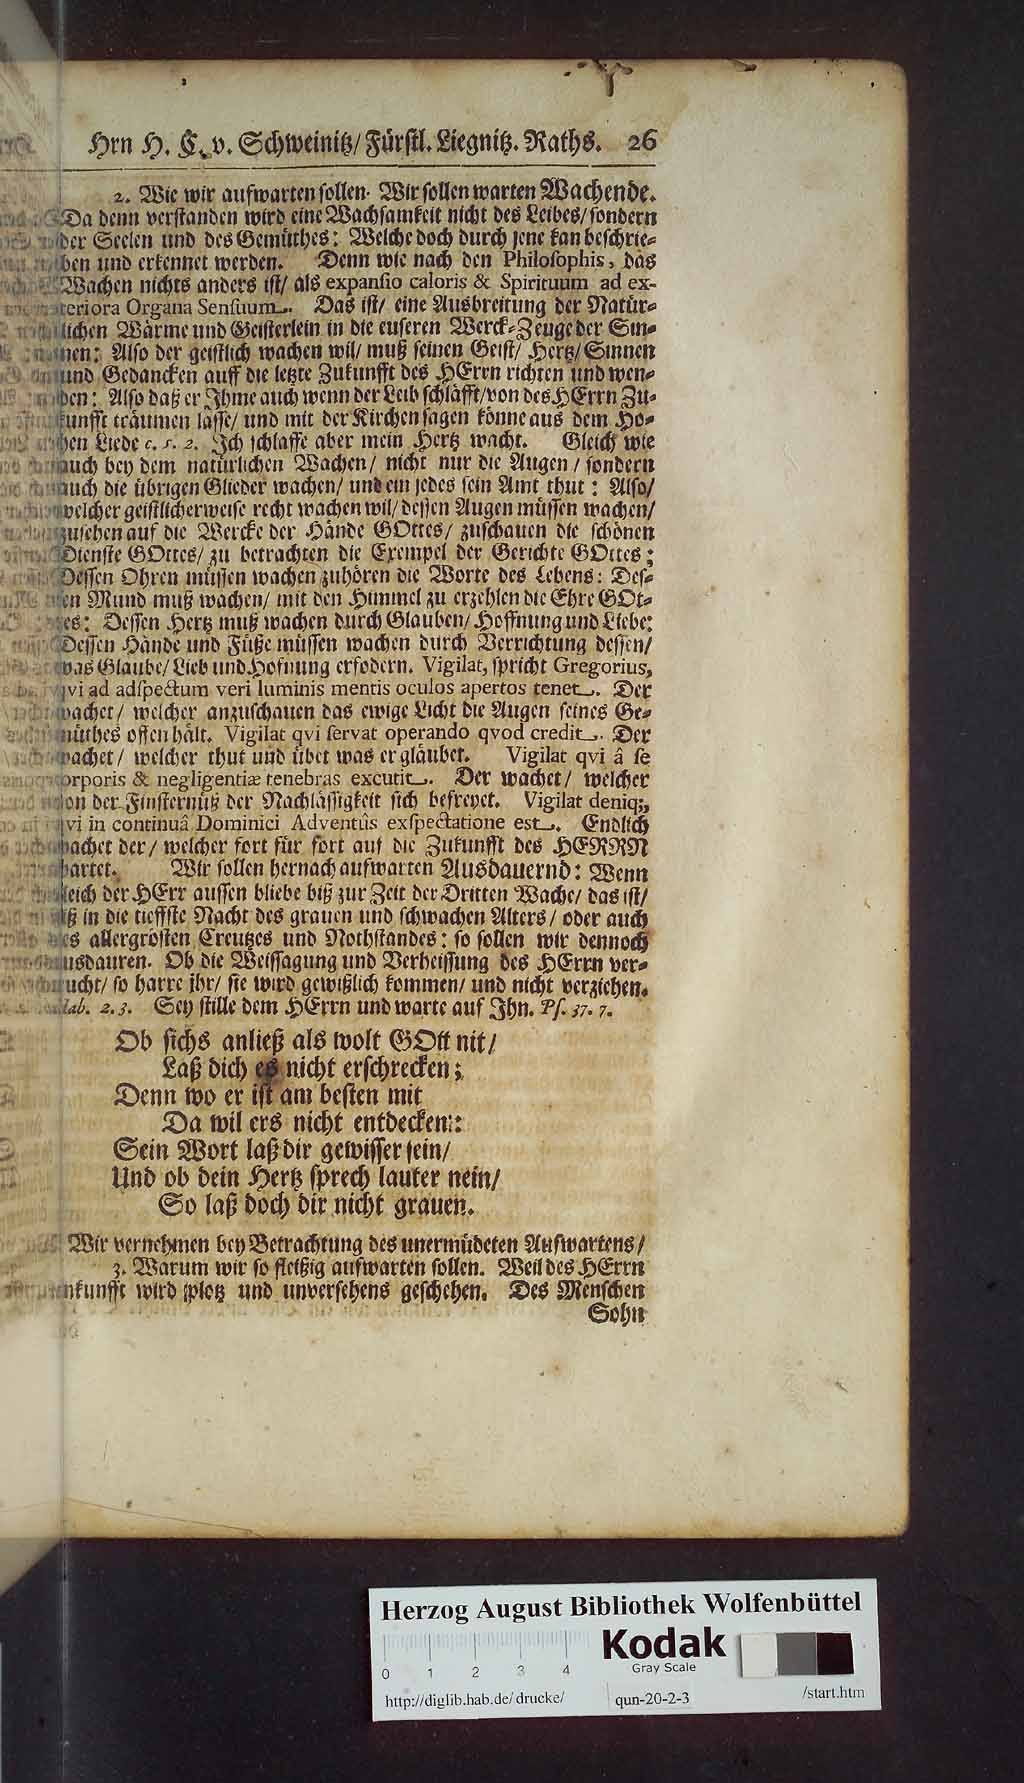 Hrn H. C. v. Schweinitz/ Fürstl. Liegnitz. Raths. 26
2. Wie wir aufwarten sollen. Wir sollen warten Wachende.
Da denn verstanden wird eine Wachsamkeit nicht des Leibes/ sondern
der Seelen und des Gemüthes: Welche doch durch jene kan beschrie-
ben und erkennet werden. Denn wie nach den Philosophis, das
Wachen nichts anders ist/ als expansio caloris & Spirituum ad ex-
teriora Organa Sensuum. Das ist/ eine Ausbreitung der Natür-
lichen Wärme und Geisterlein in die euseren Werck-Zeuge der Sin-
nen: Also der geistlich wachen wil/ muß seinen Geist/ Hertz/ Sinnen
und Gedancken auff die letzte Zukunfft des HErrn richten und wen-
den: Also daß er Ihme auch wenn der Leib schläfft/ von des HErrn Zu-
kunfft träumen lasse/ und mit der Kirchen sagen könne aus dem Ho-
hen Liede c. 5. 2. Ich schlaffe aber mein Hertz wacht. Gleich wie
auch bey dem natürlichen Wachen/ nicht nur die Augen/ sondern
auch die übrigen Glieder wachen/ und ein jedes sein Amt thut: Also/
welcher geistlicherweise recht wachen wil/ dessen Augen müssen wachen/
zusehen auf die Wercke der Hände GOttes/ zuschauen die schönen
Dienste GOttes/ zu betrachten die Exempel der Gerichte GOttes;
Dessen Ohren müssen wachen zuhören die Worte des Lebens: Des-
en Mund muß wachen/ mit den Himmel zu erzehlen die Ehre GOt-
es: Dessen Hertz muß wachen durch Glauben/ Hoffnung und Liebe:
Dessen Hände und Füße müssen wachen durch Verrichtung dessen/
was Glaube/ Lieb und Hofnung erfodern. Vigilat, spricht Gregorius,
qvi ad adspectum veri luminis mentis oculos apertos tenet. Der
wachet/ welcher anzuschauen das ewige Licht die Augen seines Ge-
müthes offen hält. Vigilat qvi servat operando qvod credit. Der
wachet/ welcher thut und übet was er gläubet. Vigilat qvi â se
orporis & negligentiæ tenebras excutit. Der wachet/ welcher
on der Finsternüß der Nachlässigkeit sich befreyet. Vigilat deniq;,
vi in continuâ Dominici Adventûs exspectatione est. Endlich
wachet der/ welcher fort für fort auf die Zukunfft des HERRN
wartet. Wir sollen hernach aufwarten Ausdauernd: Wenn
leich der HErr aussen bliebe biß zur Zeit der Dritten Wache/ das ist/
iß in die tieffste Nacht des grauen und schwachen Alters/ oder auch
es allergrösten Creutzes und Nothstandes: so sollen wir dennoch
usdauren. Ob die Weissagung und Verheissung des HErrn ver-
ucht/ so harre jhr/ sie wird gewißlich kommen/ und nicht verziehen.
Hab. 2. 3. Sey stille dem HErrn und warte auf Ihn. Ps. 37. 7.
Ob sichs anließ als wolt GOtt nit/
Laß dich es nicht erschrecken;
Denn wo er ist am besten mit
Da wil ers nicht entdecken:
Sein Wort laß dir gewisser sein/
Und ob dein Hertz sprech lauter nein/
So laß doch dir nicht grauen.
Wir vernehmen bey Betrachtung des unermüdeten Aufwartens/
3. Warum wir so fleißig aufwarten sollen. Weil des HErrn
nkunfft wird plotz und unversehens geschehen. Des Menschen
Sohn
Herzog August Bibliothek Wolfenbüttel
Kodak
Gray Scale
0 1 2 3 4
http://diglib.hab.de/drucke/ qun-20-2-3 /start.htm